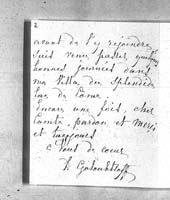 2
avant de l'y rejoindre
suis venu passer quelques
bonnes journées dans
ma villa du splendide
lac de Come.
Encore une fois, cher
Comte, pardon et merci
et toujours
à Vous de coeur